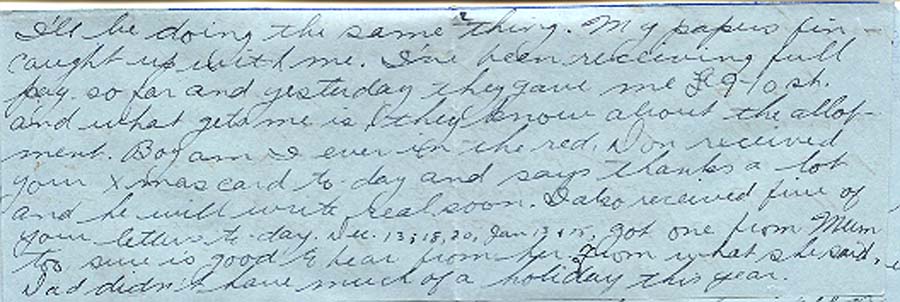 2
I'll be doing the same thing. My papers fin-
caught up with me. I've been receiving full
pay so far and yesterday they gave me £ 9-10 sh.
and what gets me is, they know about the allot-
ment. Boy am I ever in the red. Don received
your Xmas card to-day and says thanks a lot
and he will write real soon. I also received five of
your letters to-day, Dec. 13, 18, 20, Jan 13 & 15, got one from Mum
too sure is good to hear from her. From what she said,
Dad didn't have much of a holiday this year.